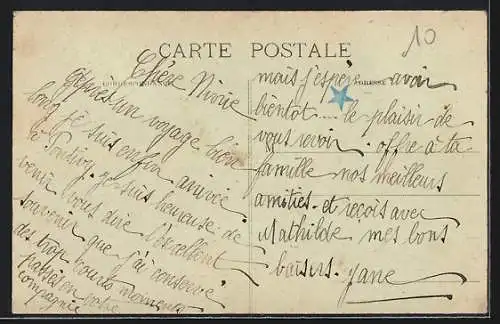 10
CARTE POSTALE
CORRESPONDANCE
ADRESSE
Chère
après un voyage bien
long je suis enfin arrivée
à Pontivy. je suis heureuse de
venir vous dire l'excellent
souvenir que j'ai conservé
des trop courts moments
passés en votre
compagnie
mais j'espère avoir
bientôt... le plaisir de
vous revoir. offre à ta
famille nos meilleurs
amitiés. et reçois avec
Mathilde mes bons
baisers. Jane